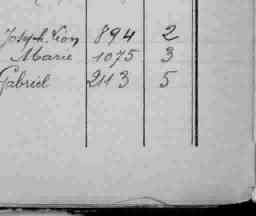 Joseph Léon 894 2
Marie 1075 3
Gabriel 2113 5